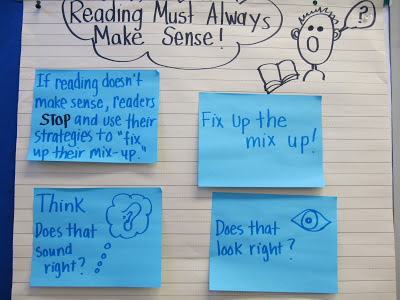 Reading Must Always
Make Sense!
?
If reading doesn't
make sense, readers
STOP and use their
strategies to "fix
up their mix-up."
Fix Up the
mix up!
Think
?
Does that
sound
right?
Does that
look right?